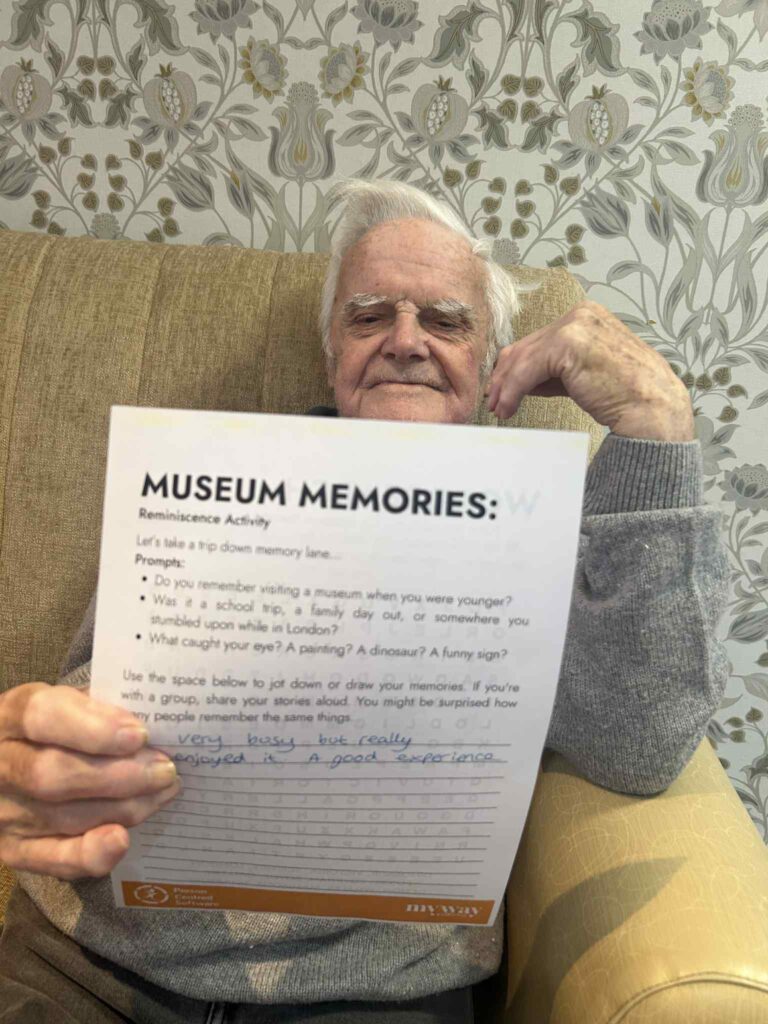 MUSEUM MEMORIES:
Reminiscence Activity
Let's take a trip down memory lane...
Prompts:
• Do you remember visiting a museum when you were younger?
• Was it a school trip, a family day out, or somewhere you
stumbled upon while in London?
• What caught your eye? A painting? A dinosaur? A funny sign?
Use the space below to jot down or draw your memories. If you're
with a group, share your stories aloud. You might be surprised how
people remember the same things.
very busy but really
enjoyed it A good experience
Person
Centred
Software
myway